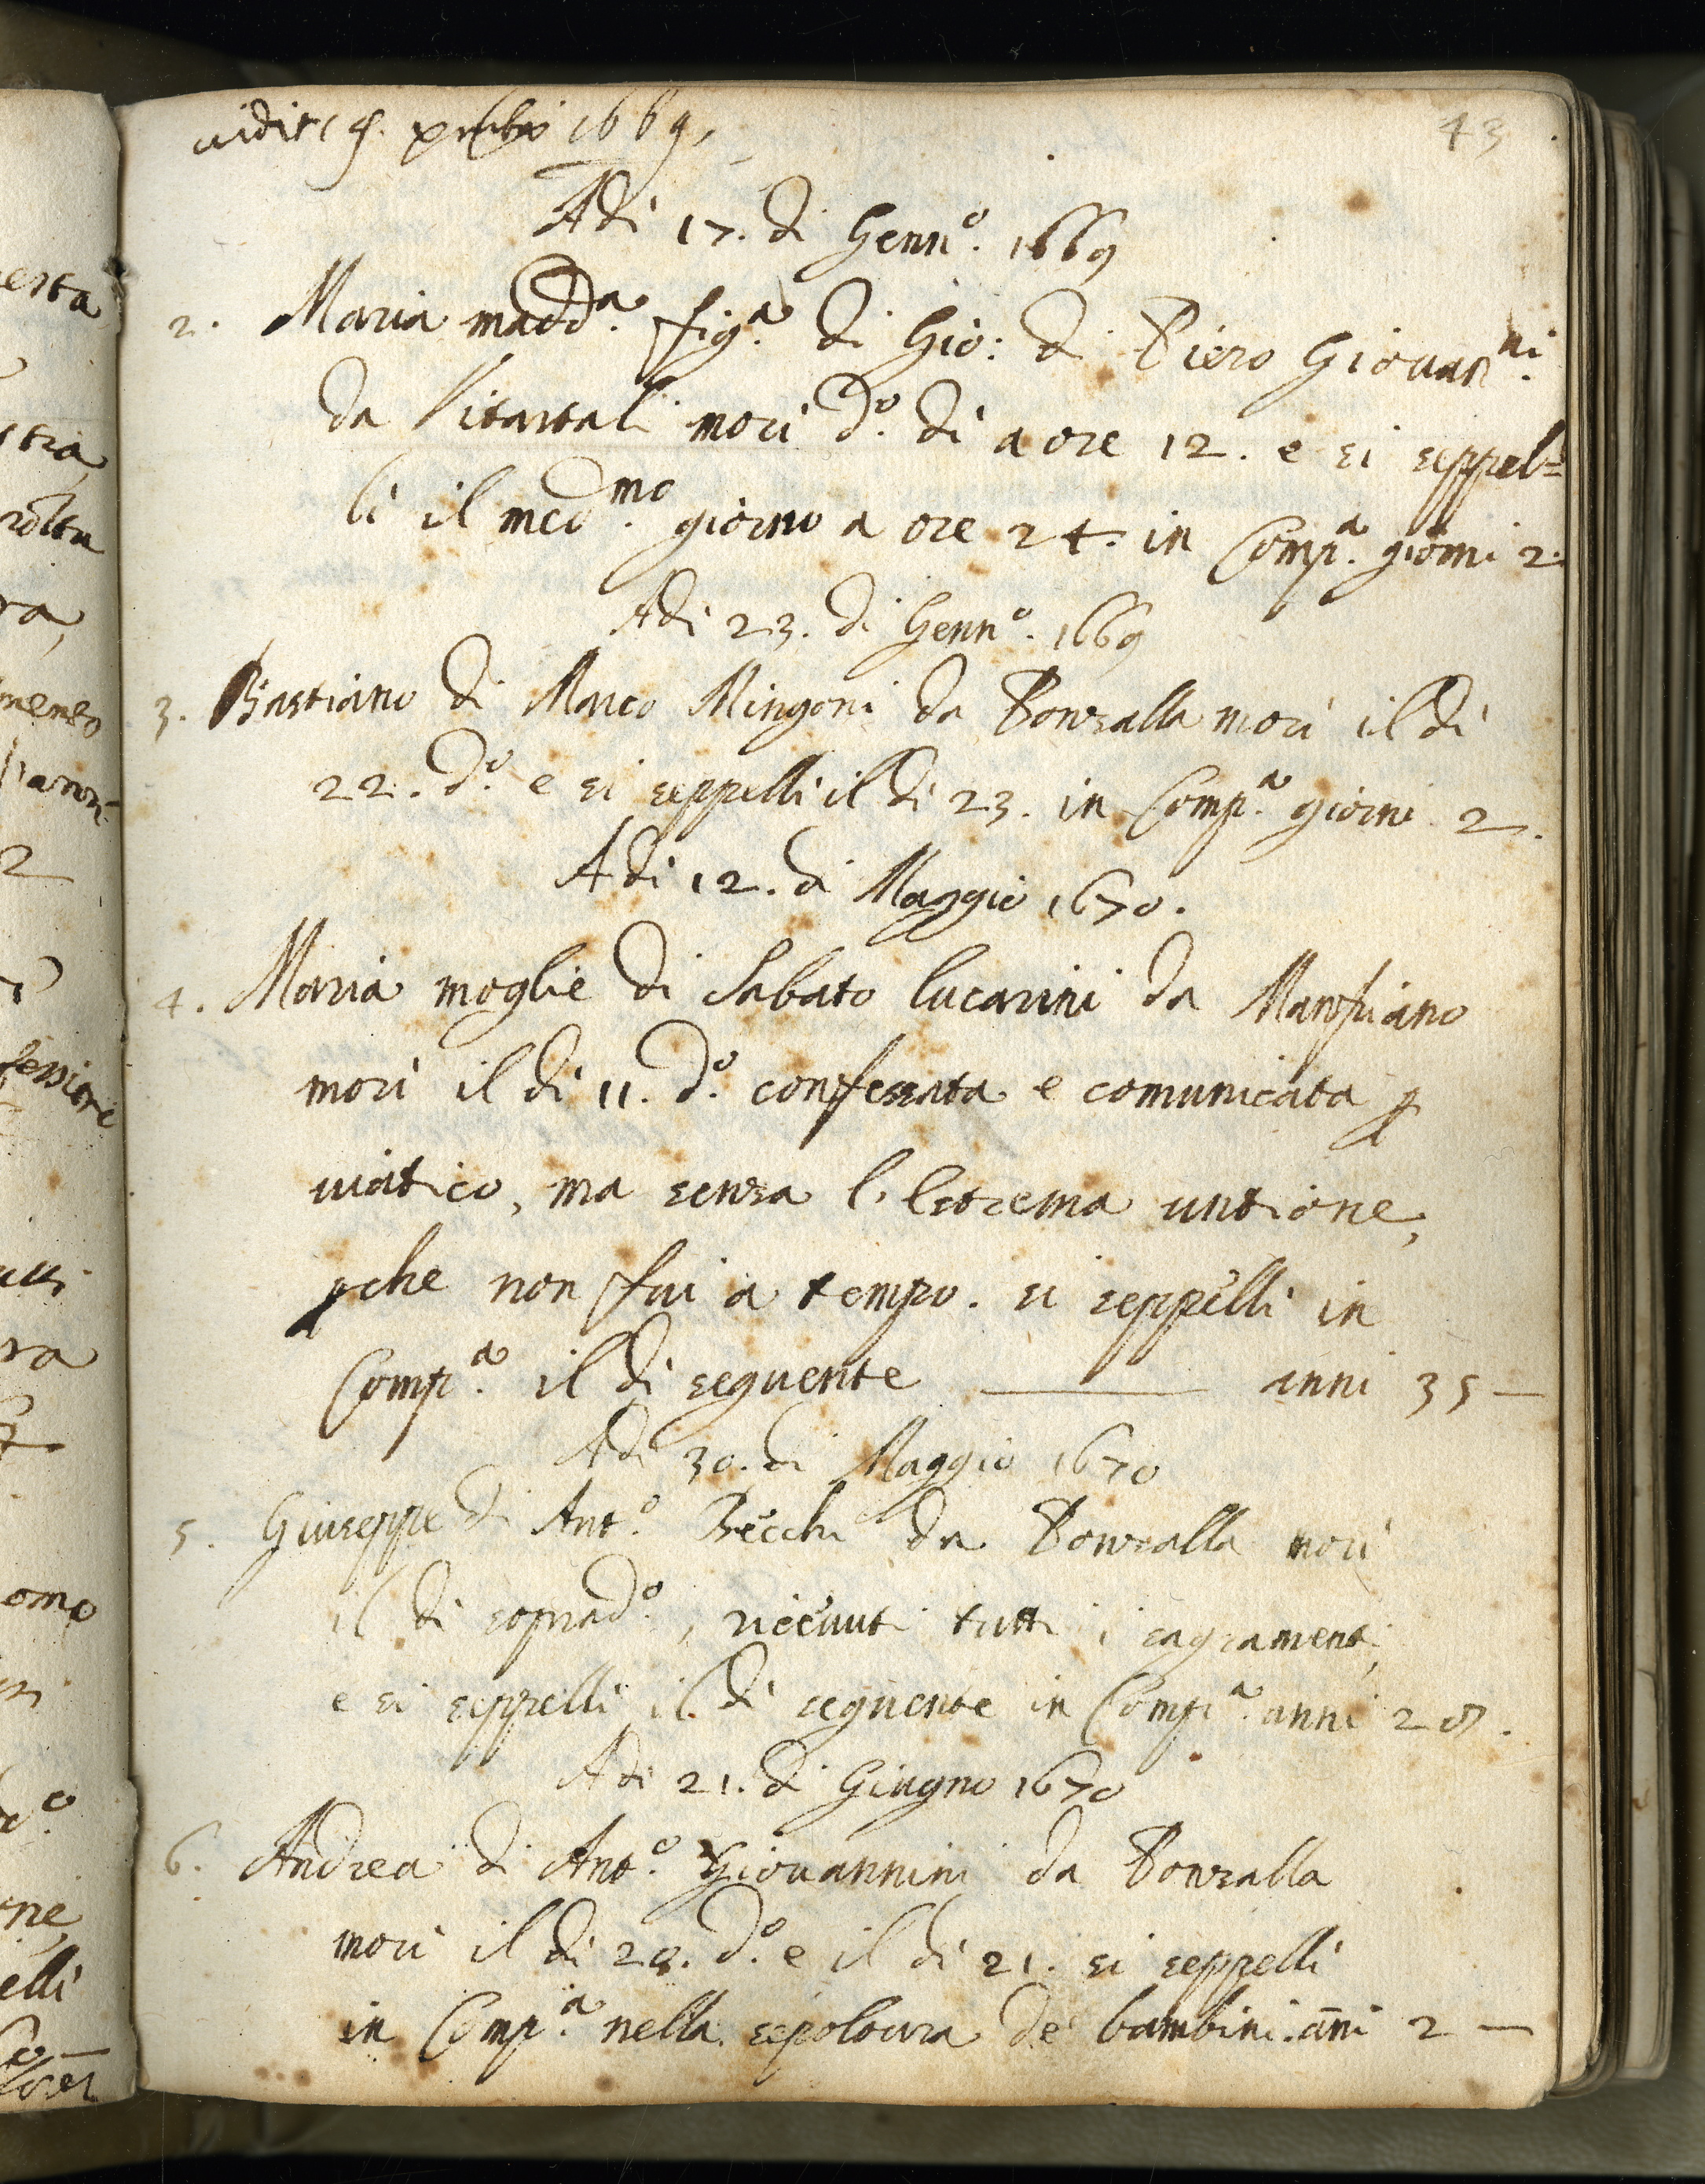 43
vidit 1669.
Adi 17. di Genn.º 1669
2. Maria madd.ª fig.ª di Gio: di Piero Giovan.ni
da Vitartali morì d.º dì a ore 12. e si seppel=
lì il med.mo giorno a ore 24. in Comp.ª giorni 2.
Adi 23. di Genn.º 1669
3. Bastiano di Marco Mingoni da Ponzalla morì il dì
22. d.º e si seppellì il dì 23. in Comp.ª giorni 2.
Adi 12. di Maggio 1670.
4. Maria moglie di Sabato Lucarini da Manfriano
morì il dì 11. d.º confessata e comunicata p
viatico, ma senza l'estrema untione,
pche non fui a tempo. si seppellì in
Comp.ª il dì seguente — anni 35 —
Adi 30. di Maggio 1670
5. Giuseppe di Ant.º Becchi da Ponzalla morì
il dì soprad.º, ricevuti tutti i sagramenti,
e si seppellì il dì seguente in Comp.ª anni 28.
Adi 21. di Giugno 1670
6. Andrea di Ant.º Giovannini da Ponzalla
morì il dì d.º e il dì 21. si seppellì
in Comp.ª nella sepoltura de bambini. añi 2 —